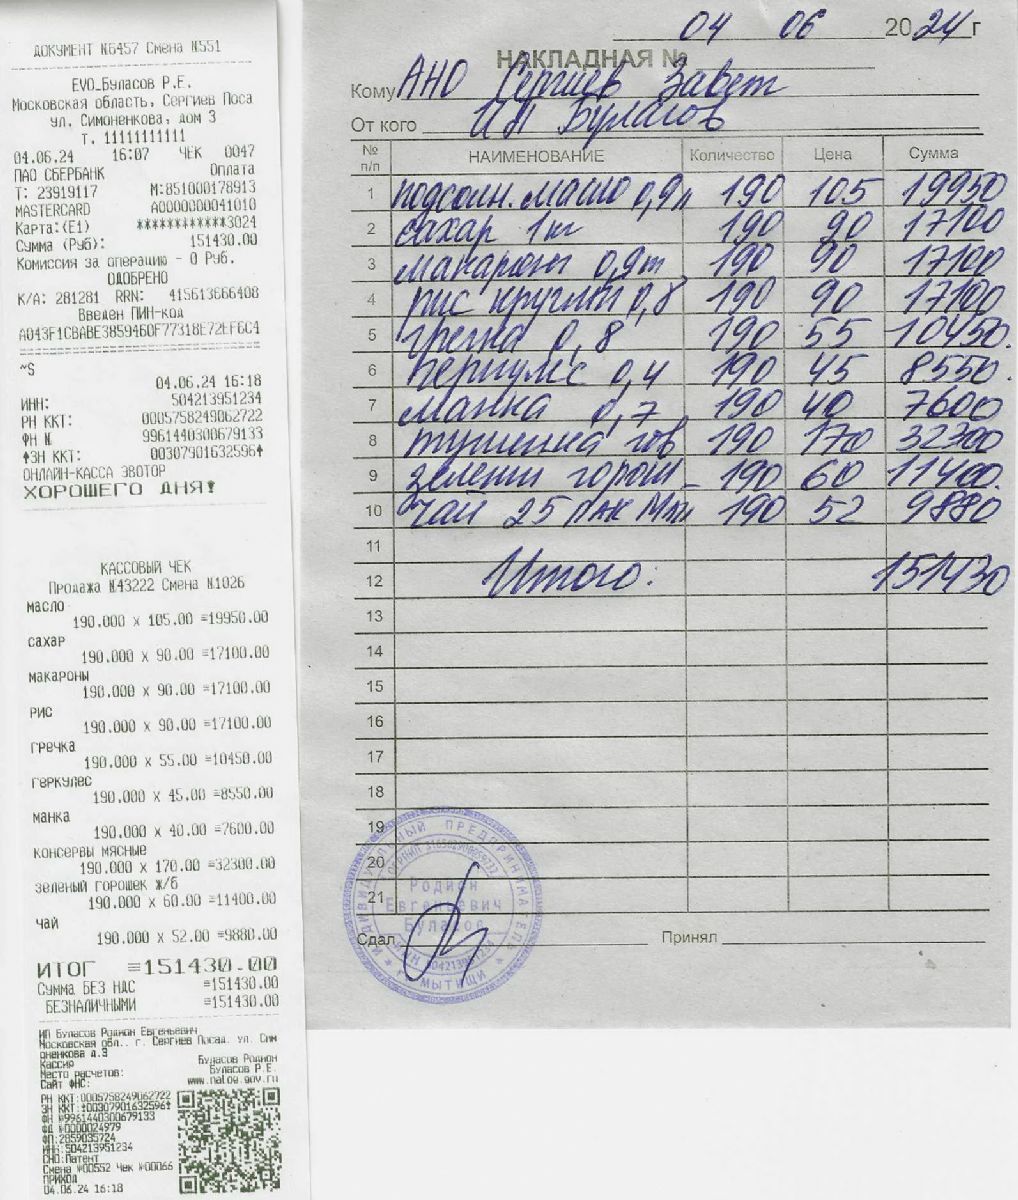 ДОКУМЕНТ №6457 Смена №551
EVO_Буласов Р.Е.
Московская область, Сергиев Поса
ул. Симоненкова, дом 3
Т. 11111111111
04.06.24 16:07 ЧЕК 0047
ПАО СБЕРБАНК Оплата
Т: 23919117 М:851000178913
MASTERCARD A0000000041010
Карта:(E1) ************3024
Сумма (Руб): 151430.00
Комиссия за операцию - 0 Руб.
ОДОБРЕНО
К/А: 281281 RRN: 415613666408
Введен ПИН-код
A043F1CBABE3859460F77318E72EF6C4
~S
04.06.24 16:18
ИНН: 504213951234
РН ККТ: 0005758249062722
ФН № 9961440300679133
↟ЗН ККТ: 00307901632596↟
ОНЛАЙН-КАССА ЭВОТОР
ХОРОШЕГО ДНЯ!
КАССОВЫЙ ЧЕК
Продажа №43222 Смена №1026
масло
190.000 X 105.00 =19950.00
сахар
190.000 X 90.00 =17100.00
макароны
190.000 X 90.00 =17100.00
рис
190.000 X 90.00 =17100.00
гречка
190.000 X 55.00 =10450.00
геркулес
190.000 X 45.00 =8550.00
манка
190.000 X 40.00 =7600.00
консервы мясные
190.000 X 170.00 =32300.00
зеленый горошек ж/б
190.000 X 60.00 =11400.00
чай
190.000 X 52.00 =9880.00
ИТОГ =151430.00
Сумма БЕЗ НДС =151430.00
БЕЗНАЛИЧНЫМИ =151430.00
ИП Буласов Родион Евгеньевич
Московская обл., г. Сергиев Посад. ул. Сим
оненкова д.3
Кассир Буласов Родион
Место расчетов: Буласов Р.Е.
Сайт ФНС: www.nalog.gov.ru
РН ККТ:0005758249062722
ЗН ККТ:↟00307901632596↟
ФН №9961440300679133
ФД №0000024979
ФП:2859035724
ИНН:504213951234
СНО:Патент
Смена №00552 Чек №00066
ПРИХОД
04.06.24 16:18
04 06 2024 г
НАКЛАДНАЯ №
Кому АНО Сергиев Завет
От кого ИП Буласов
№ п/п НАИМЕНОВАНИЕ Количество Цена Сумма
1 подсолн. масло 0,9л 190 105 19950
2 сахар 1кг 190 90 17100
3 макароны 0,9т 190 90 17100
4 рис круглый 0,8 190 90 17100
5 гречка 0,8 190 55 10450.
6 геркулес 0,4 190 45 8550.
7 манка 0,7 190 40 7600
8 тушенка гов 190 170 32300
9 зелен горош - 190 60 11400.
10 Чай 25 пак 190 52 9880
11
12 Итого: 151430
13
14
15
16
17
18
19
20
21
ИНДИВИДУАЛЬНЫЙ ПРЕДПРИНИМАТЕЛЬ
Родион
Евгеньевич
Буласов
г. МЫТИЩИ
Сдал Принял